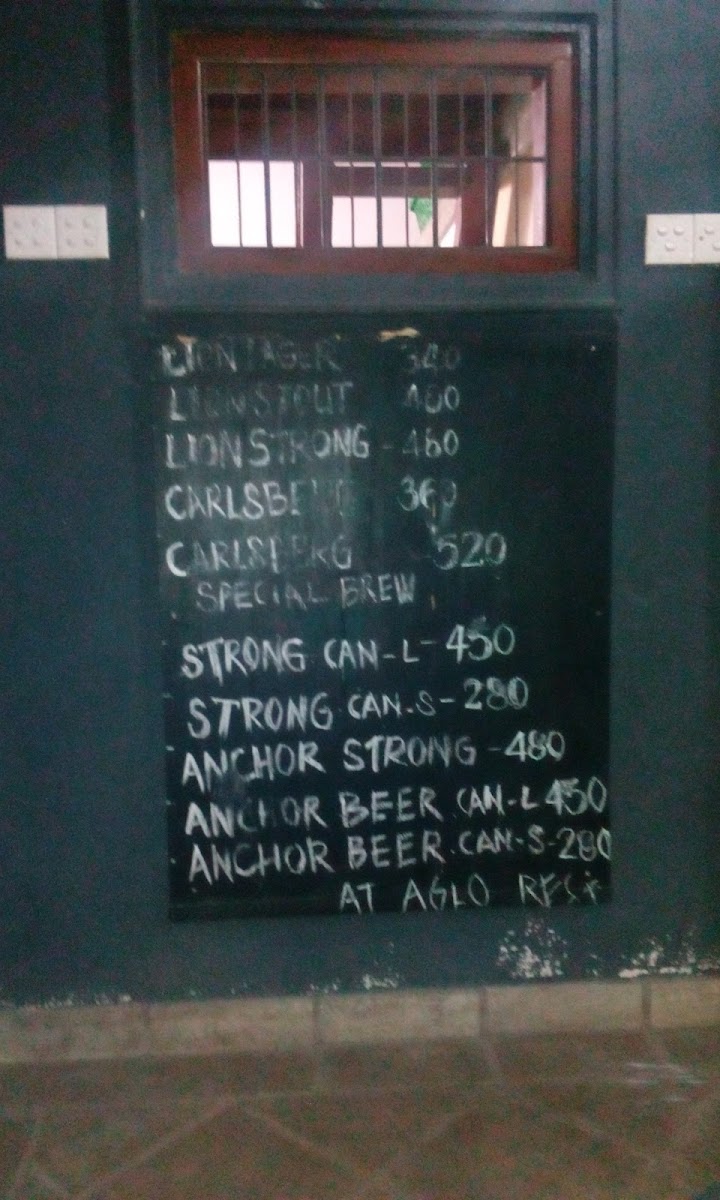 LION LAGER 340
LION STOUT 460
LION STRONG - 460
CARLSBERG 360
CARLSBERG 520
SPECIAL BREW
STRONG CAN-L - 450
STRONG CAN-S - 280
ANCHOR STRONG - 480
ANCHOR BEER CAN-L 450
ANCHOR BEER CAN-S-280
AT AGLO REST